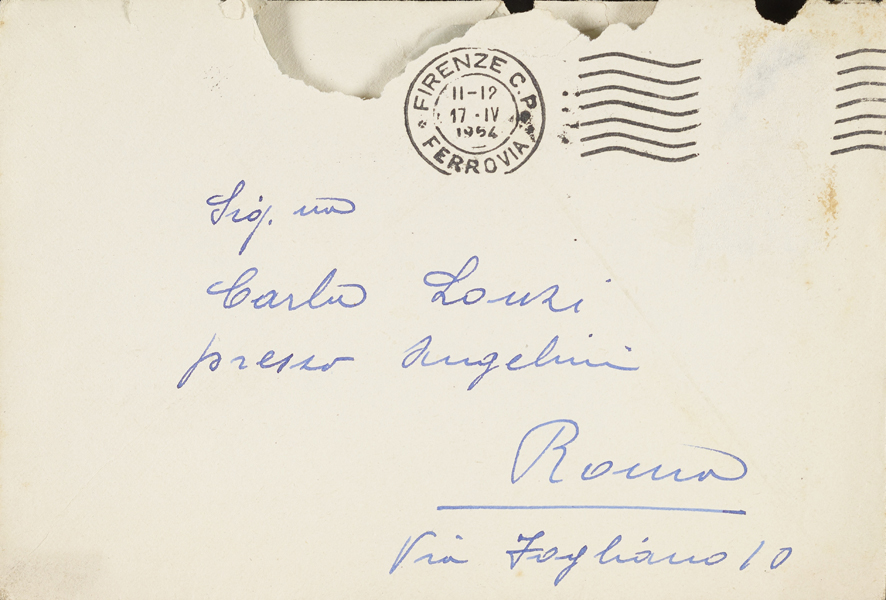 FIRENZE C.P.
11-12
17·IV
1954
FERROVIA
Sig.na
Carla Lonzi
presso Angelini
Roma
Via Fogliano 10